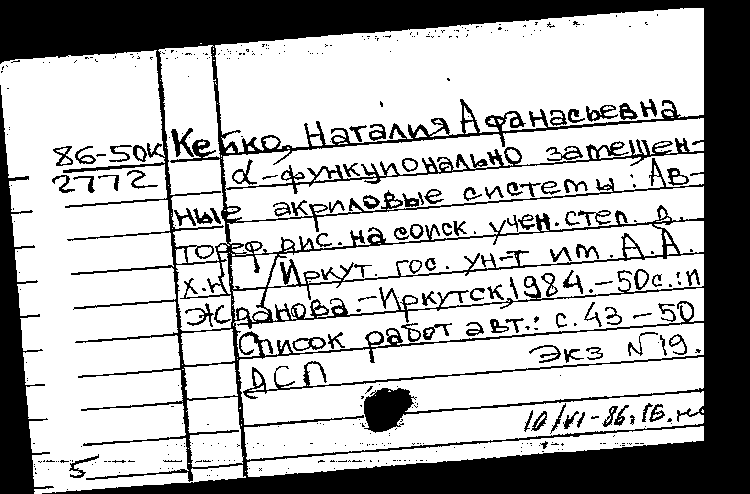 86-50к Кейко, Наталия Афанасьевна
2772 α-функционально замещен-
ные акриловые системы: Ав-
тореф. дис. на соиск. учен. степ. д.
х.н. / Иркут. гос. ун-т им. А.А.
Жданова. - Иркутск, 1984. - 50с.: и
Список работ авт.: с. 43 - 50
ДСП Экз N 19.
10/VI-86.
5